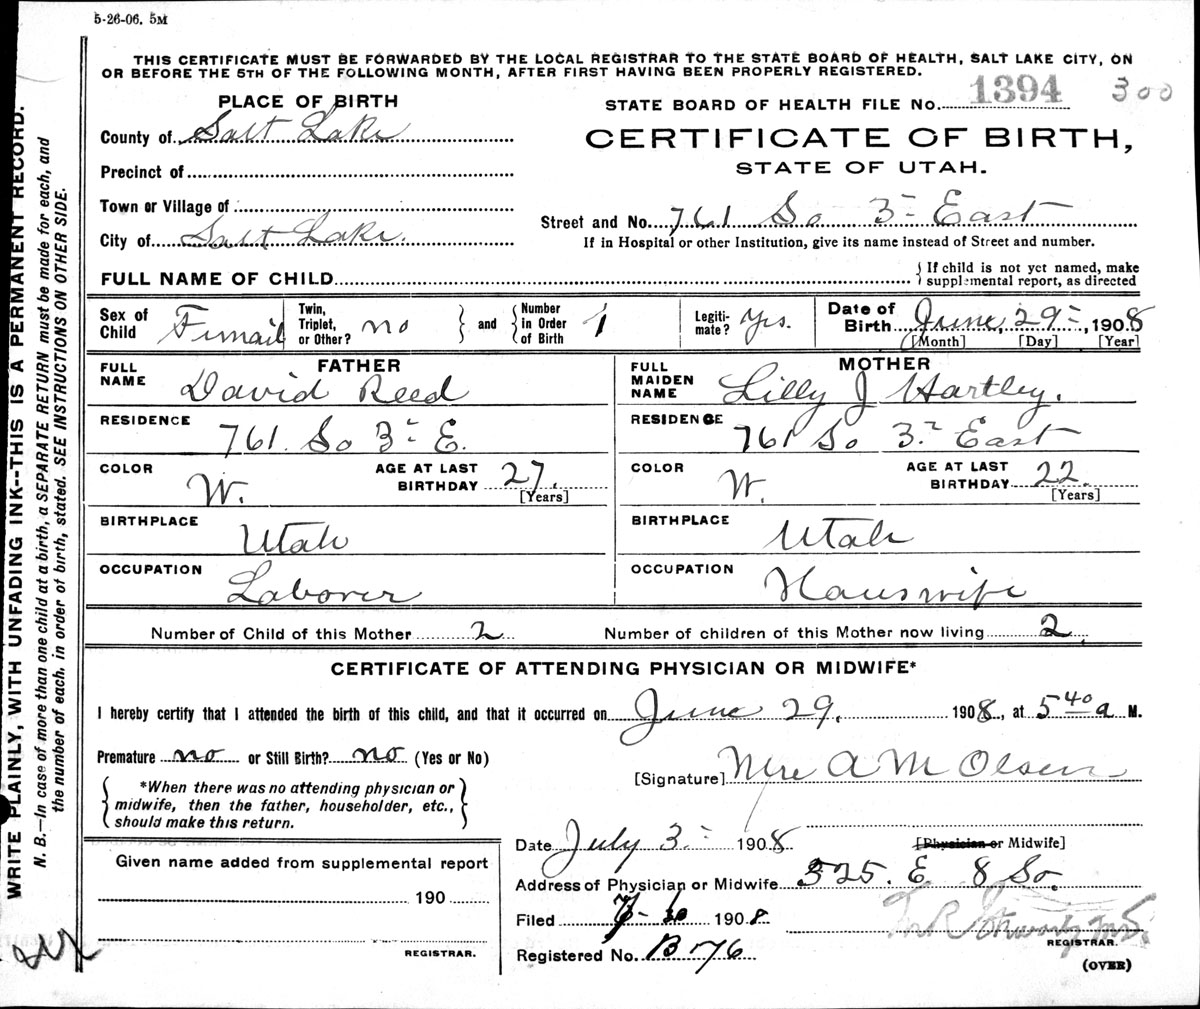 5-26-06. 5M
THIS CERTIFICATE MUST BE FORWARDED BY THE LOCAL REGISTRAR TO THE STATE BOARD OF HEALTH, SALT LAKE CITY, ON
OR BEFORE THE 5TH OF THE FOLLOWING MONTH, AFTER FIRST HAVING BEEN PROPERLY REGISTERED.
PLACE OF BIRTH
STATE BOARD OF HEALTH FILE No. 1394 300
County of Salt Lake
CERTIFICATE OF BIRTH,
STATE OF UTAH.
Precinct of
Town or Village of
Street and No. 761 So 3- East
City of Salt Lake.
If in Hospital or other Institution, give its name instead of Street and number.
FULL NAME OF CHILD
{If child is not yet named, make
supplemental report, as directed
Sex of Child Femail
Twin, Triplet, or Other? no
and
Number in Order of Birth 1
Legiti-mate? Yes.
Date of Birth June, 29-, 1908
[Month] [Day] [Year]
FATHER
FULL NAME David Reed
MOTHER
FULL MAIDEN NAME Lilly J Hartley.
RESIDENCE 761. So 3- E.
RESIDENCE 761 So 3- East
COLOR W.
AGE AT LAST BIRTHDAY 27. [Years]
COLOR W.
AGE AT LAST BIRTHDAY 22. [Years]
BIRTHPLACE Utah
BIRTHPLACE Utah
OCCUPATION Laborer
OCCUPATION Hauswife
Number of Child of this Mother 2
Number of children of this Mother now living 2
CERTIFICATE OF ATTENDING PHYSICIAN OR MIDWIFE*
I hereby certify that I attended the birth of this child, and that it occurred on June 29, 1908, at 5 40 a M.
Premature no or Still Birth? no (Yes or No)
[Signature] Mrs A M Olsen
{*When there was no attending physician or
midwife, then the father, householder, etc.,
should make this return.}
Date July 3- 1908
[Physician or Midwife]
Given name added from supplemental report
190
REGISTRAR.
Address of Physician or Midwife 325. E 8 So.
Filed 1908
REGISTRAR.
Registered No. B 76
(OVER)
WRITE PLAINLY, WITH UNFADING INK--THIS IS A PERMANENT RECORD.
N. B.—In case of more than one child at a birth, a SEPARATE RETURN must be made for each, and
the number of each, in order of birth, stated. SEE INSTRUCTIONS ON OTHER SIDE.